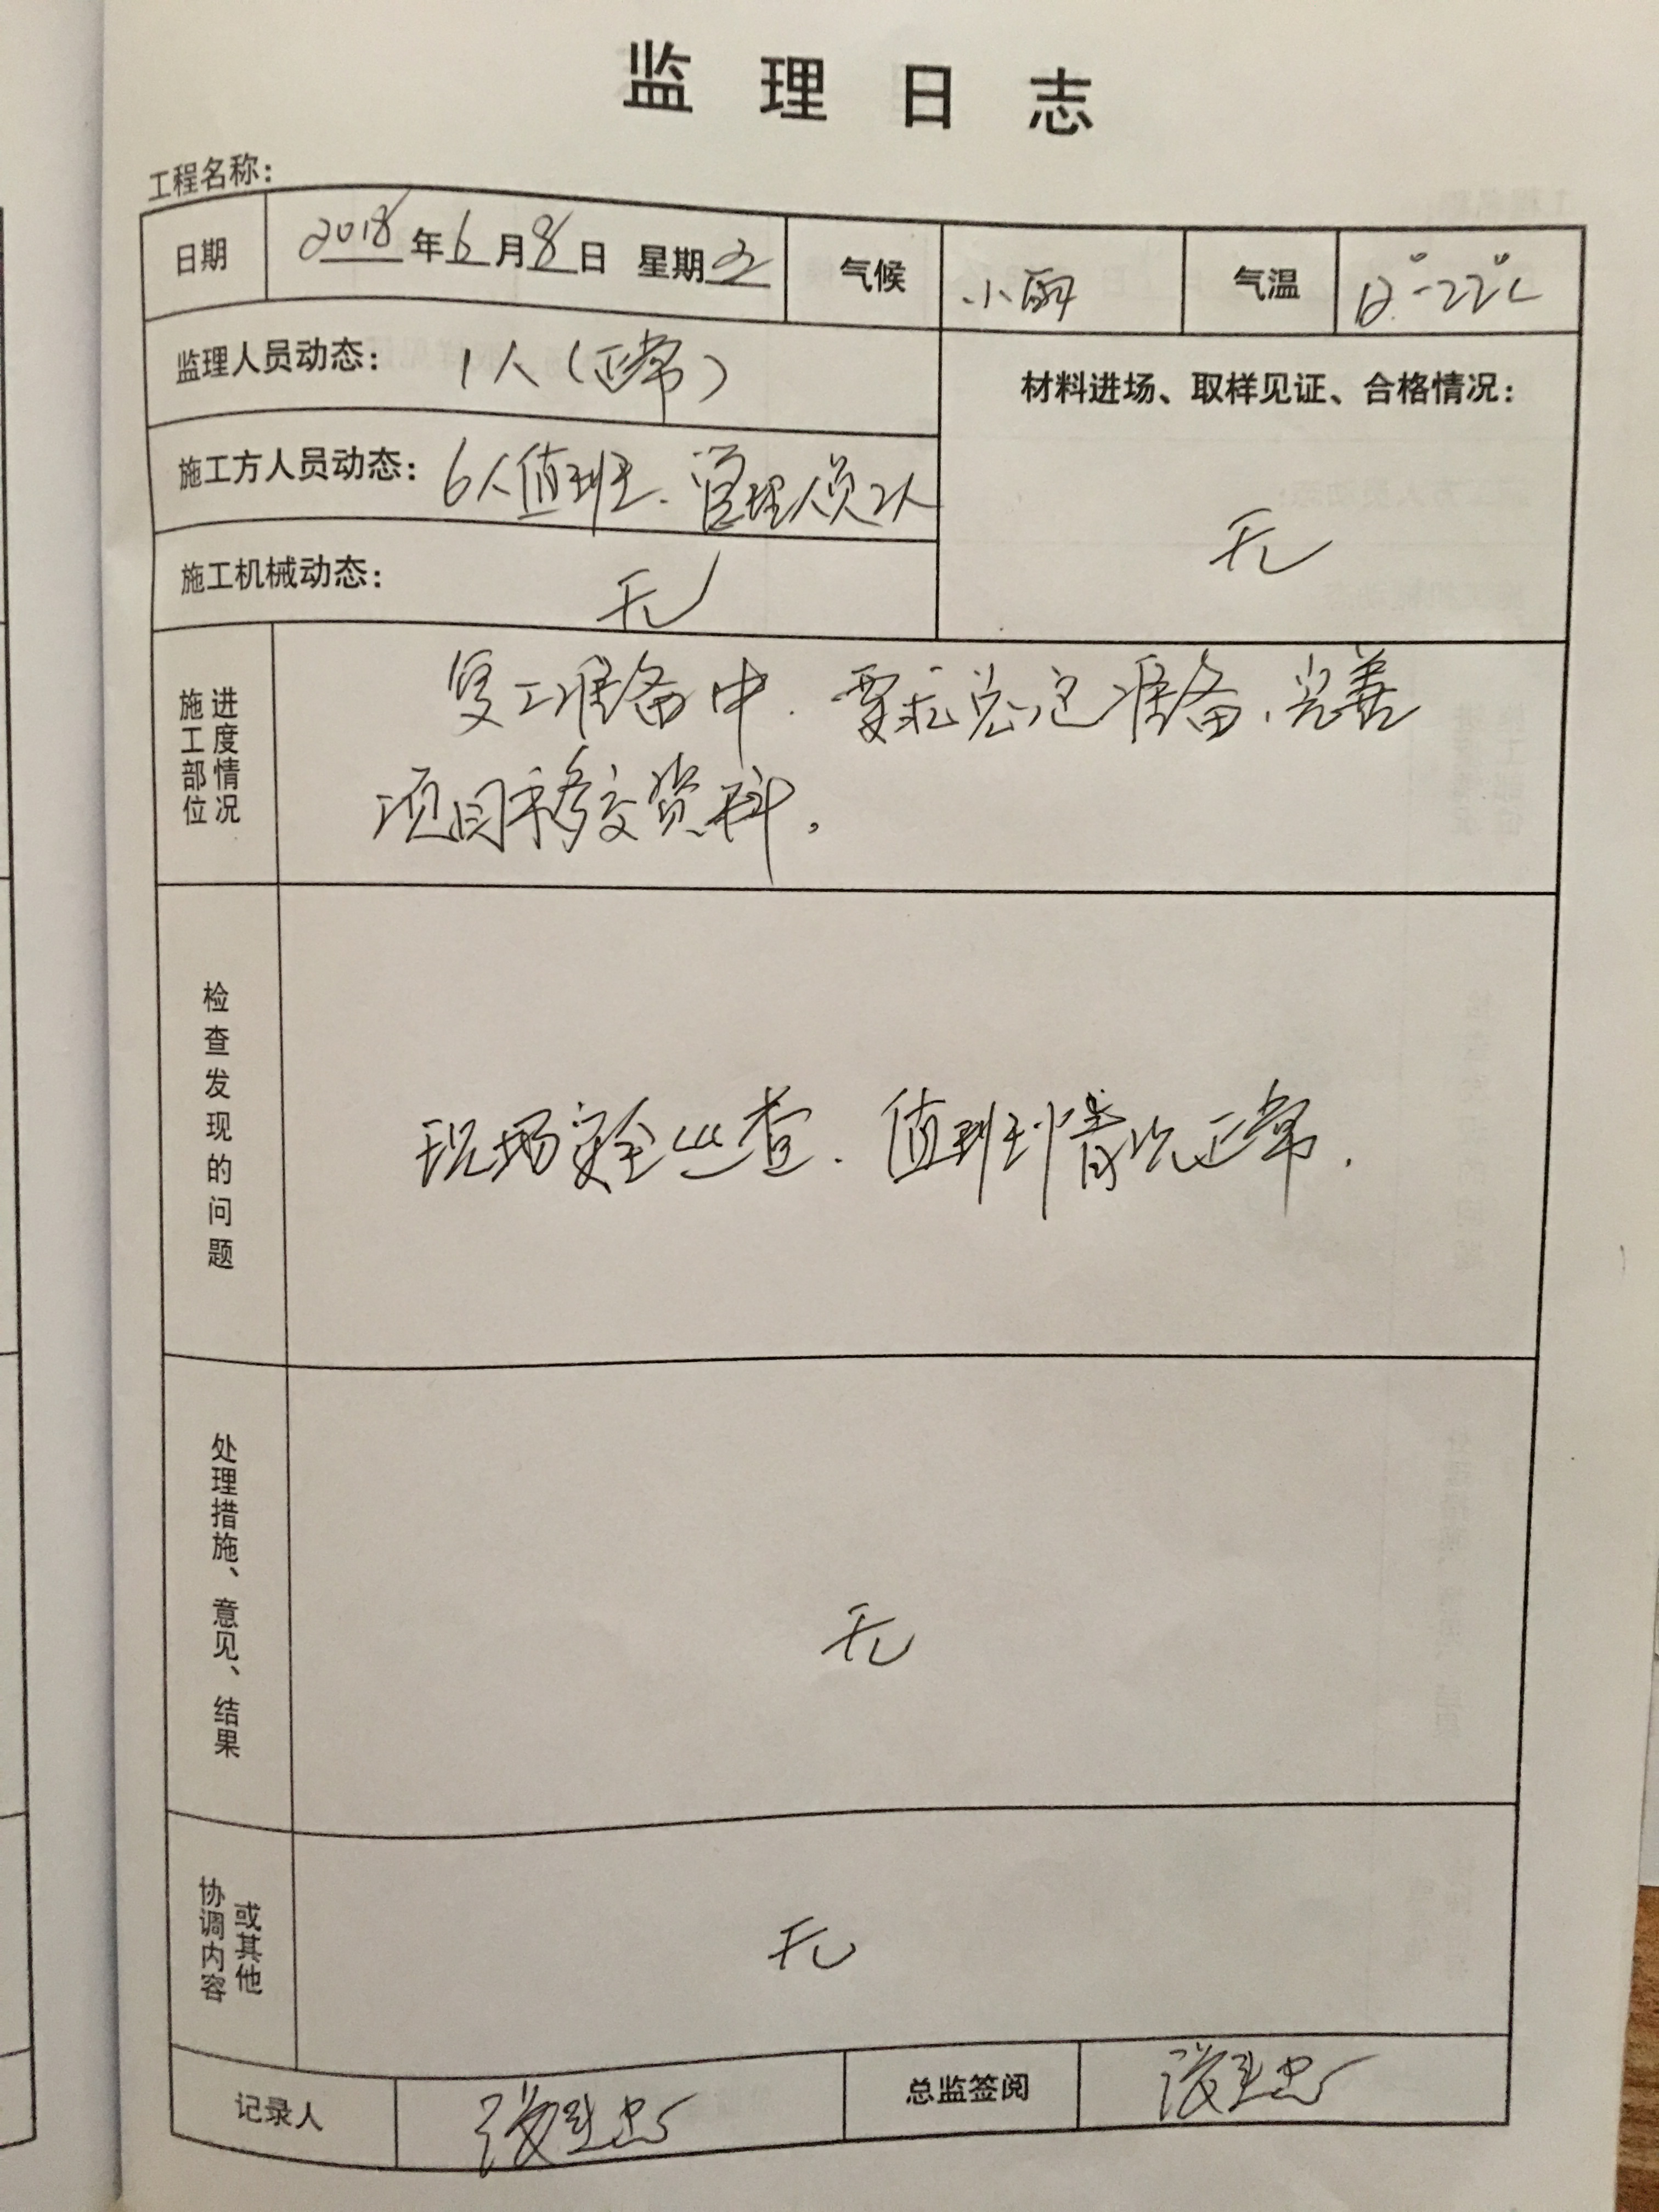 监理日志
工程名称:
日期 2018年6月8日 星期五 气候 小雨 气温 12°-22℃
监理人员动态: 1人(正常)
材料进场、取样见证、合格情况:
施工方人员动态: 6人值班、管理人员2人
无
施工机械动态: 无
施工部位 进度情况
复工准备中、要求总包准备、完善
项目移交资料。
检查发现的问题
现场安全巡查、值班到情况正常.
处理措施、意见、结果
无
协调内容 或其他
无
记录人 总监签阅